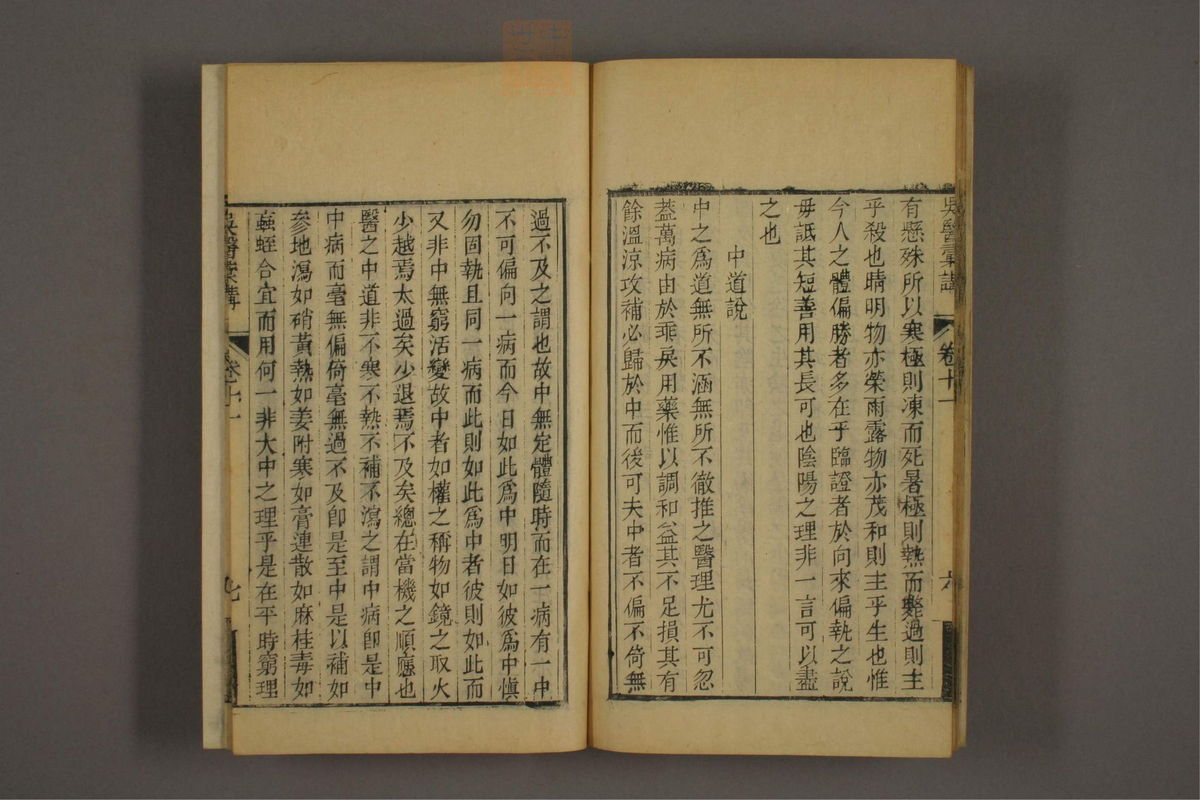 吳醫彙講
卷十一
六
有懸殊所以寒極則凍而死暑極則熱而斃過則主
乎殺也晴明物亦榮雨露物亦茂和則主乎生也惟
今人之體偏勝者多在乎臨證者於向來偏執之說
毋詆其短善用其長可也陰陽之理非一言可以盡
之也
中道說
中之爲道無所不涵無所不徹推之醫理尤不可忽
蓋萬病由於乖戾用藥惟以調和益其不足損其有
餘溫涼攻補必歸於中而後可夫中者不偏不倚無
過不及之謂也故中無定體隨時而在一病有一中
不可偏向一病而今日如此爲中明日如彼爲中愼
勿固執且同一病而此則如此爲中者彼則如此而
又非中無窮活變故中者如權之稱物如鏡之取火
少越焉太過矣少退焉不及矣總在當機之順應也
醫之中道非不寒不熱不補不瀉之謂中病卽是中
中病而毫無偏倚毫無過不及卽是至中是以補如
參地瀉如硝黃熱如姜附寒如膏連散如麻桂毒如
蟲蛭合宜而用何一非大中之理乎是在平時窮理
吳醫彙講
卷十一
七